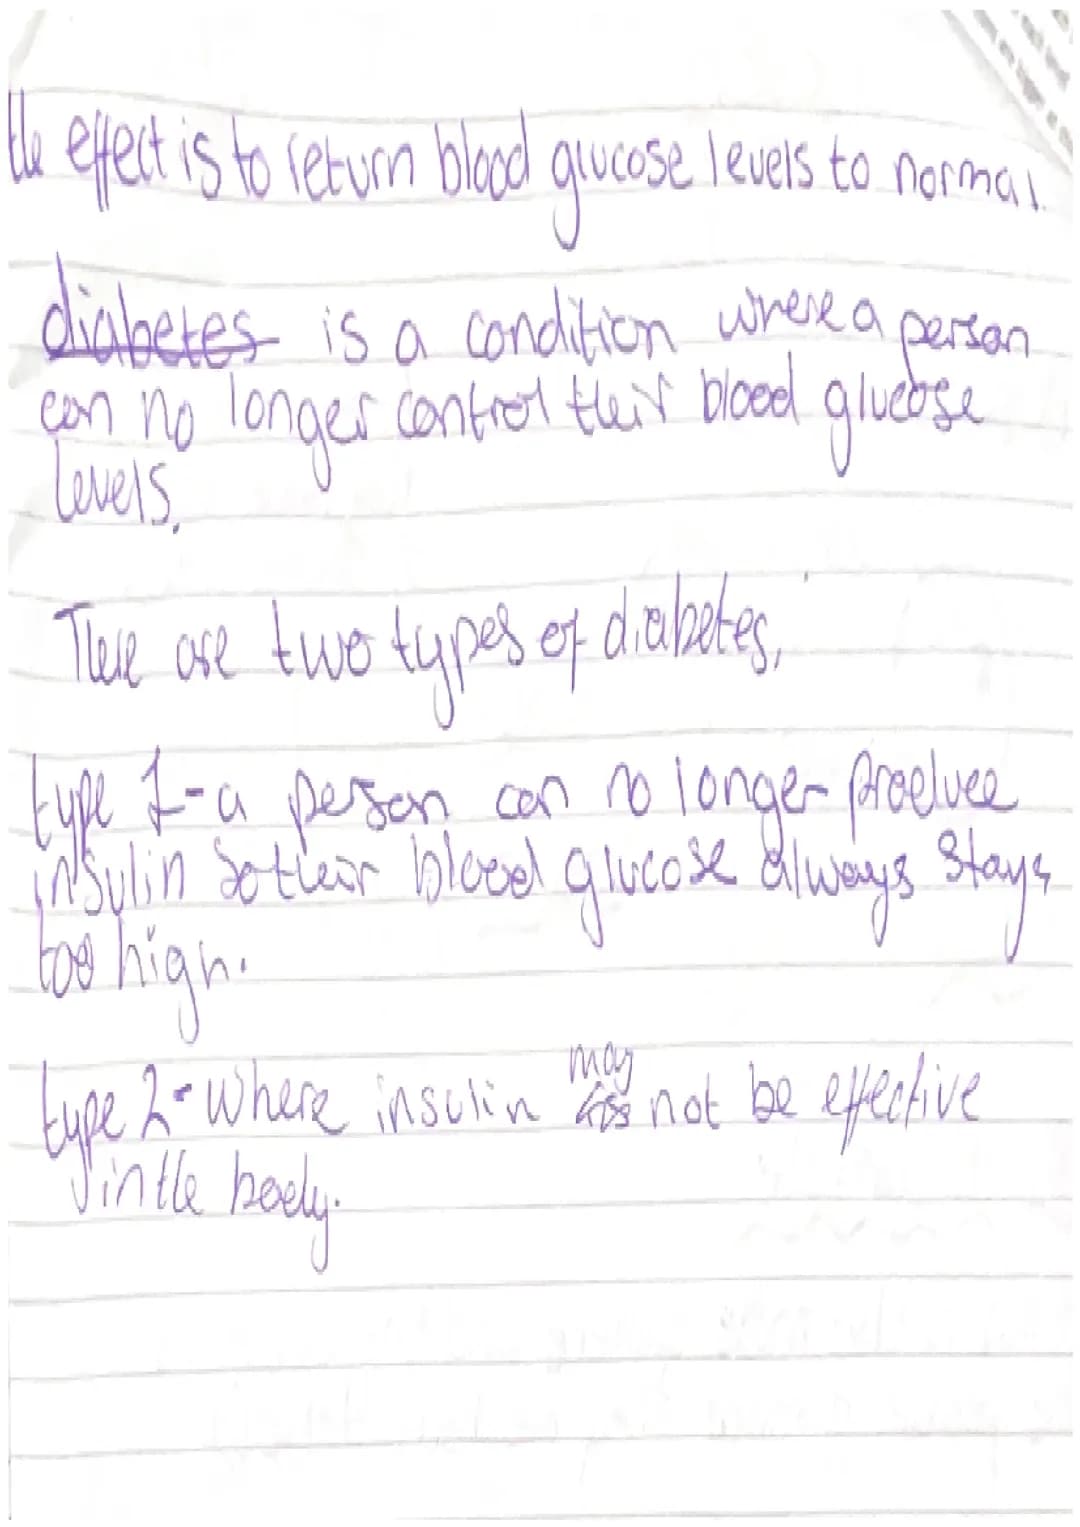 the effect is to return blood glucose levels to normal.
diabetes is a condition where a person
can no longer control their blood glucose
levels.
There are two types of diabetes,
type 1-a person can no longer produce
insulin so their blood glucose always stays
too high.
type 2-where insulin may not be effective
in the body.